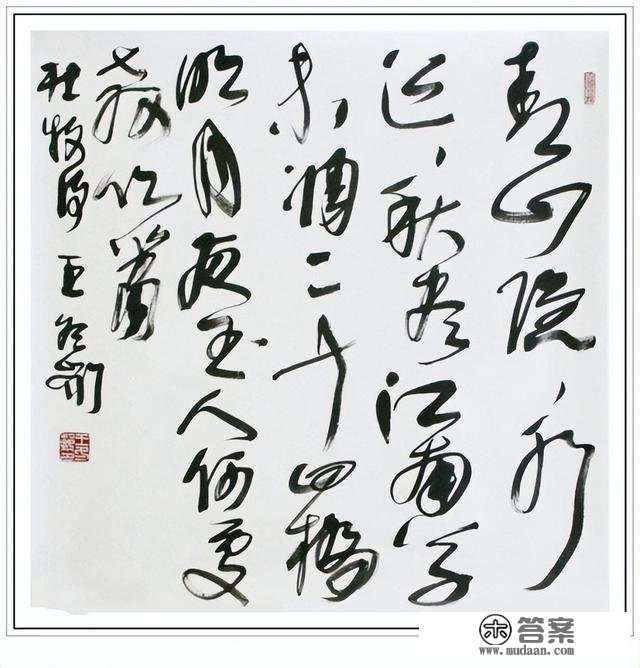 青山隐〻水
迢〻秋尽江南草
未凋二十四桥
明月夜玉人何处
教吹箫
杜牧诗 王冬龄
答案
www.mudaan.com